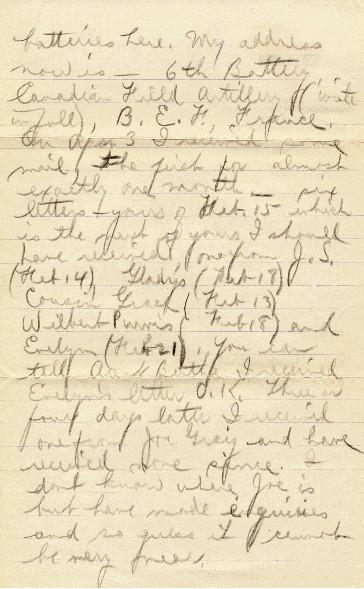 batteries here. My address
now is — 6th Battery
Canadian Field Artillery (write
in full), B. E. F. France.
On Apr 3 I received some
mail, the first for almost
exactly one month — six
letters — yours of Feb. 15 which
is the next of yours I should
have received, one from J. S.
(Feb 14) Gladys (Feb 18)
Cousin Grace (Feb 13)
Wilbert Purvis (Feb 18) and
Evelyn (Feb 21). You can
tell Aunt I received
Evelyn's letter O.K. Three or
four days later I received
one from Joe Gray and have
received none since. I
dont know where Joe is
but have made enquiries
and so guess it cannot
be very